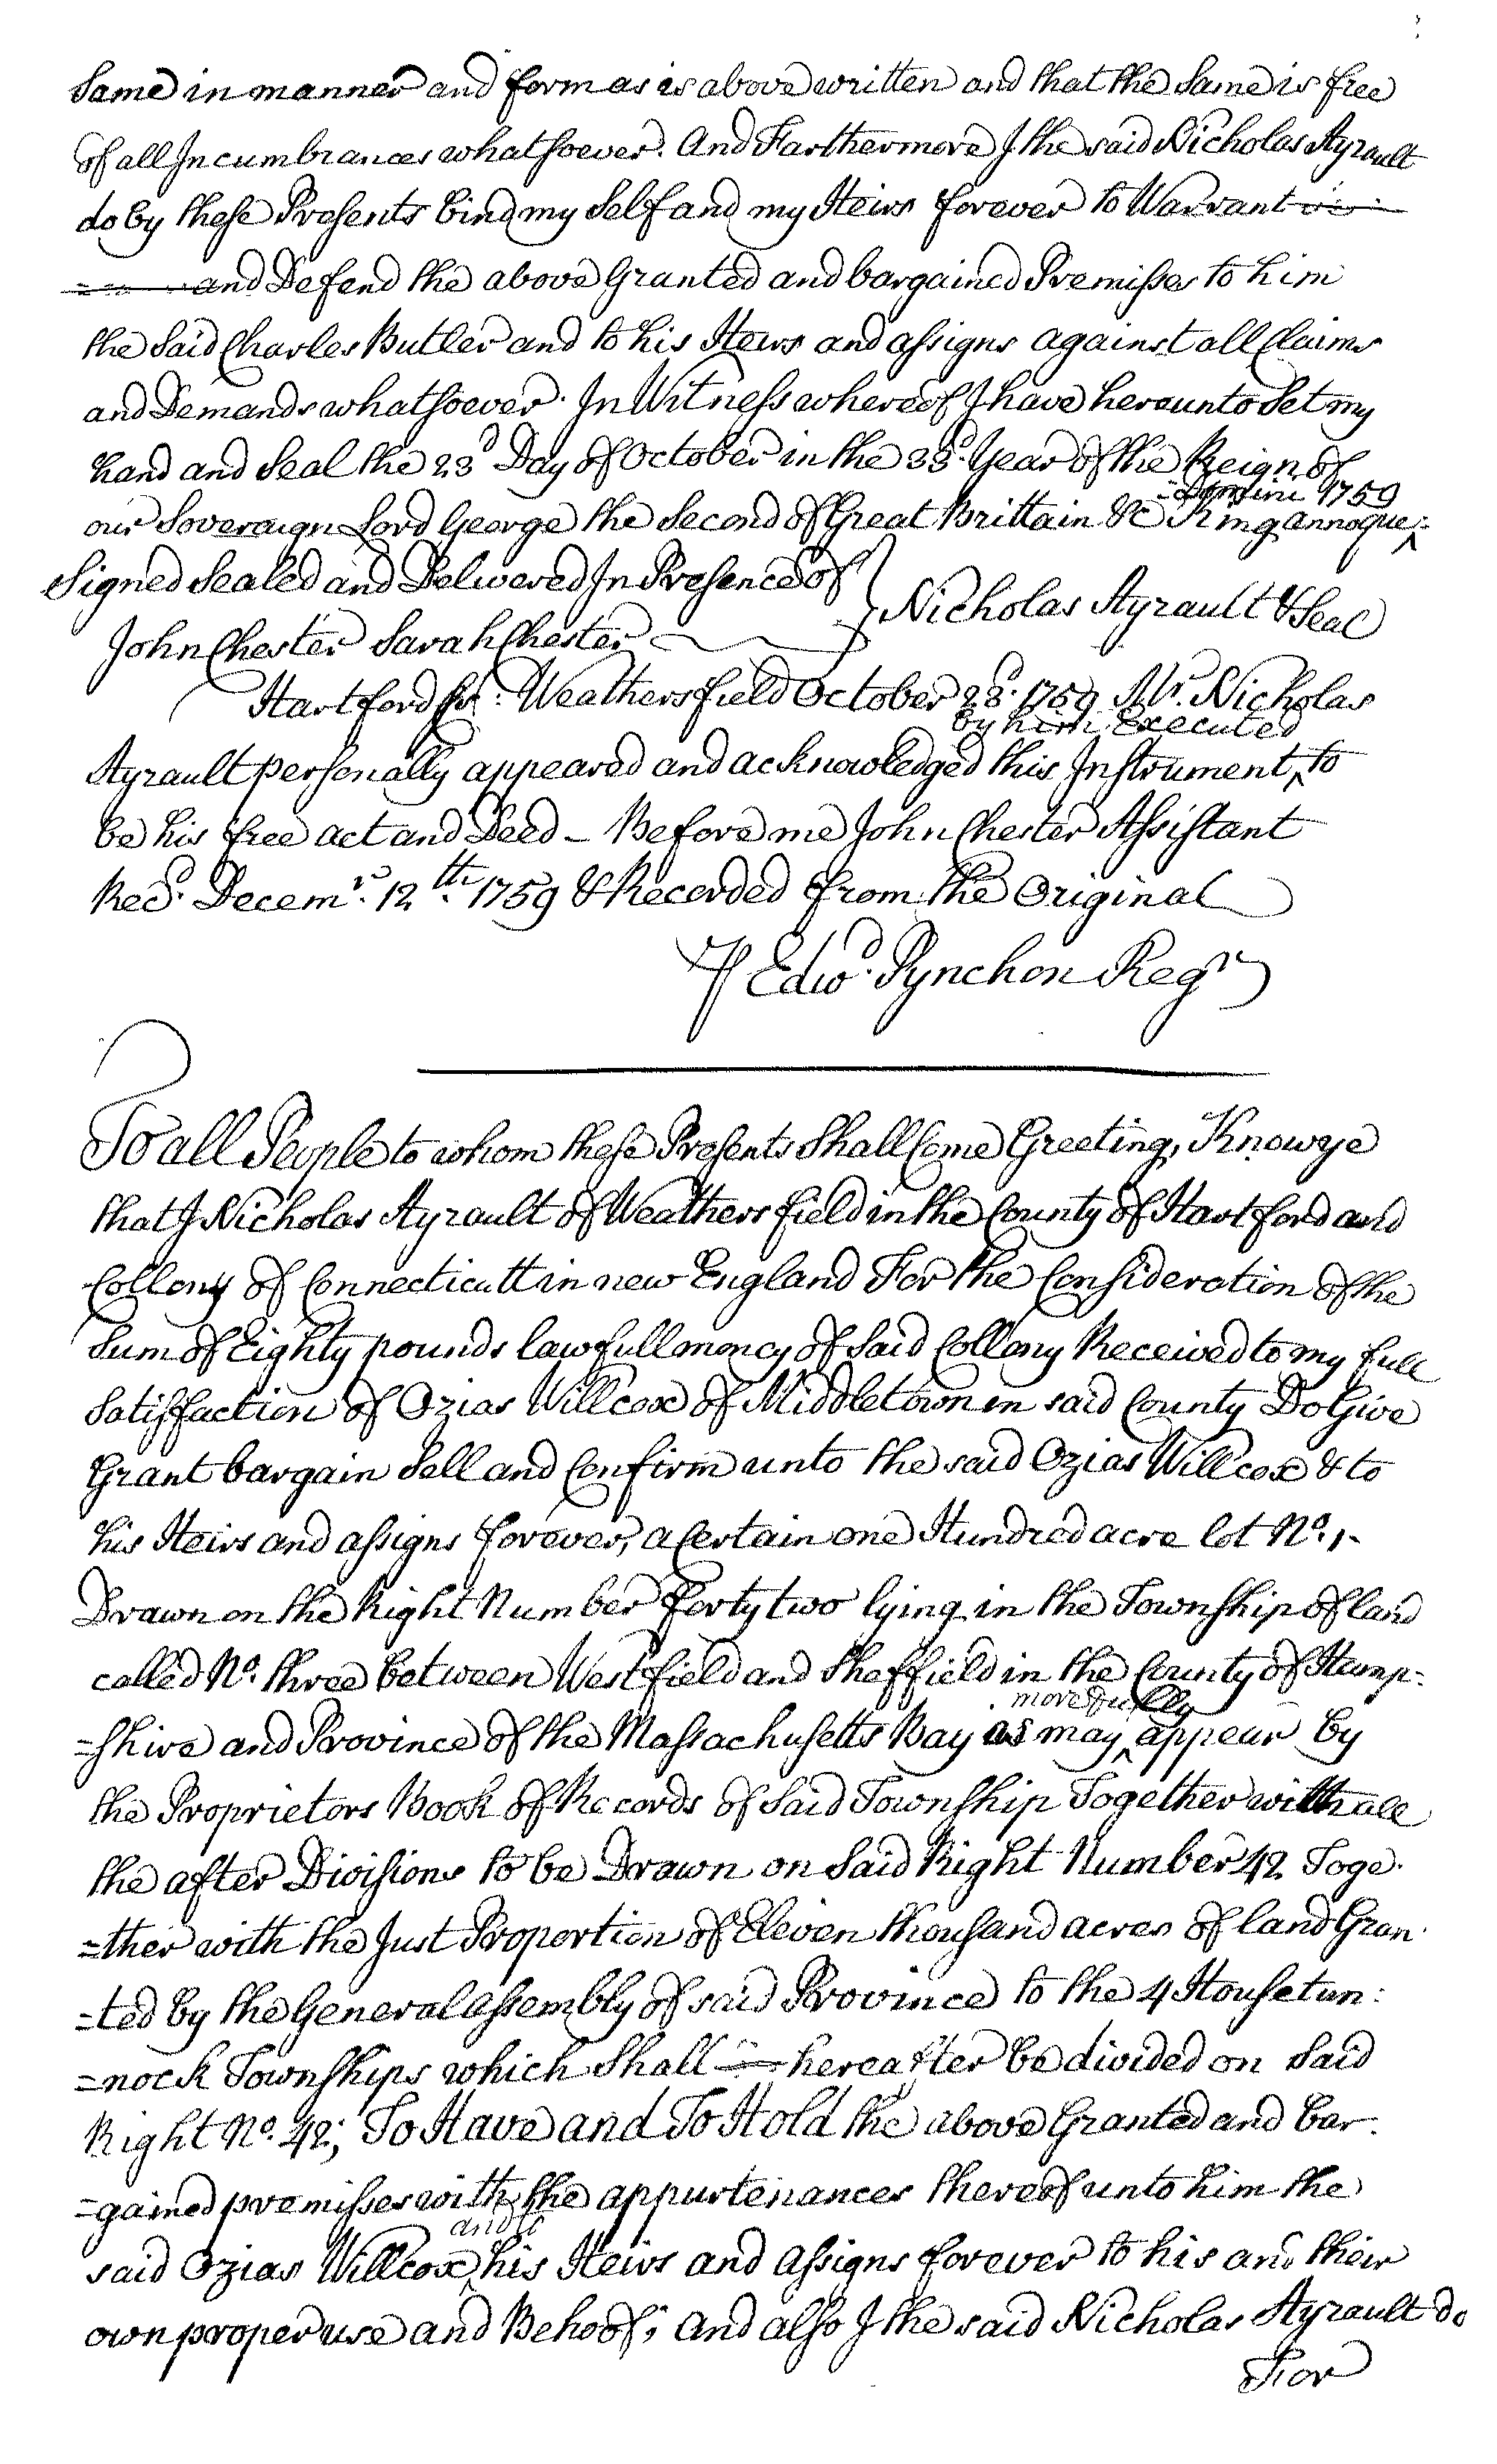 Same in manner and form as is above written and that the Same is free
of all Incumbrances whatsoever. And Farthermore I the said Nicholas Ayrault
do by these Presents bind my Self and my Heirs forever to Warrant
and Defend the above Granted and bargained Premisses to him
the Said Charles Butler and to his Heirs and assigns against all Claims
and Demands whatsoever. In Witness whereof I have hereunto Set my
hand and Seal the 23d Day of October in the 33d. Year of the Reign of
=Domini 1759
our Soveraign Lord George the Second of Great Brittain &c King annoque:
Signed Sealed and Delivered In Presence of
Nicholas Ayrault & Seal
John Chester Sarah Chester
Hartford Ss: Weathersfield October 23d. 1759 Mr. Nicholas
by him Executed
Ayrault personally appeared and acknowledged this Instrument ‸ to
be his free act and Deed - Before me John Chester Assistant
Recd. Decemr. 12th. 1759 & Recorded from the Original
Edwd. Pynchon Regr
To all People to whom these Presents Shall Come Greeting, Know ye
that I Nicholas Ayrault of Weathersfield in the County of Hartford and
Collony of Connecticutt in new England For the Consideration of the
Sum of Eighty pounds lawfull money of Said Collony Received to my full
Satisfaction of Ozias Willcox of Middletown in said County Do Give
Grant bargain Sell and Confirm unto the said Ozias Willcox & to
his Heirs and assigns forever, a Certain one Hundred acre lot No. 1-
Drawn on the Right Number forty two lying in the Township of land
called No. three between Westfield and Sheffield in the County of Hamp:
more fully
=shire and Province of the Massachusetts Bay as may ‸ appear by
the Proprietors Book of Records of Said Township Together with all
the after Divisions to be Drawn on Said Right Number 42 Toge.
=ther with the Just Proportion of Eleven thousand acres of land Gran.
=ted by the General assembly of said Province to the 4 Housetun:
=nock Townships which Shall hereafter be divided on Said
Right No. 42; To Have and To Hold the above Granted and bar.
=gained premisses with the appurtenances thereof unto him the
and to
said Ozias Willcox ‸ his Heirs and assigns forever to his and their
own proper use and Behoof; and also I the said Nicholas Ayrault do
For